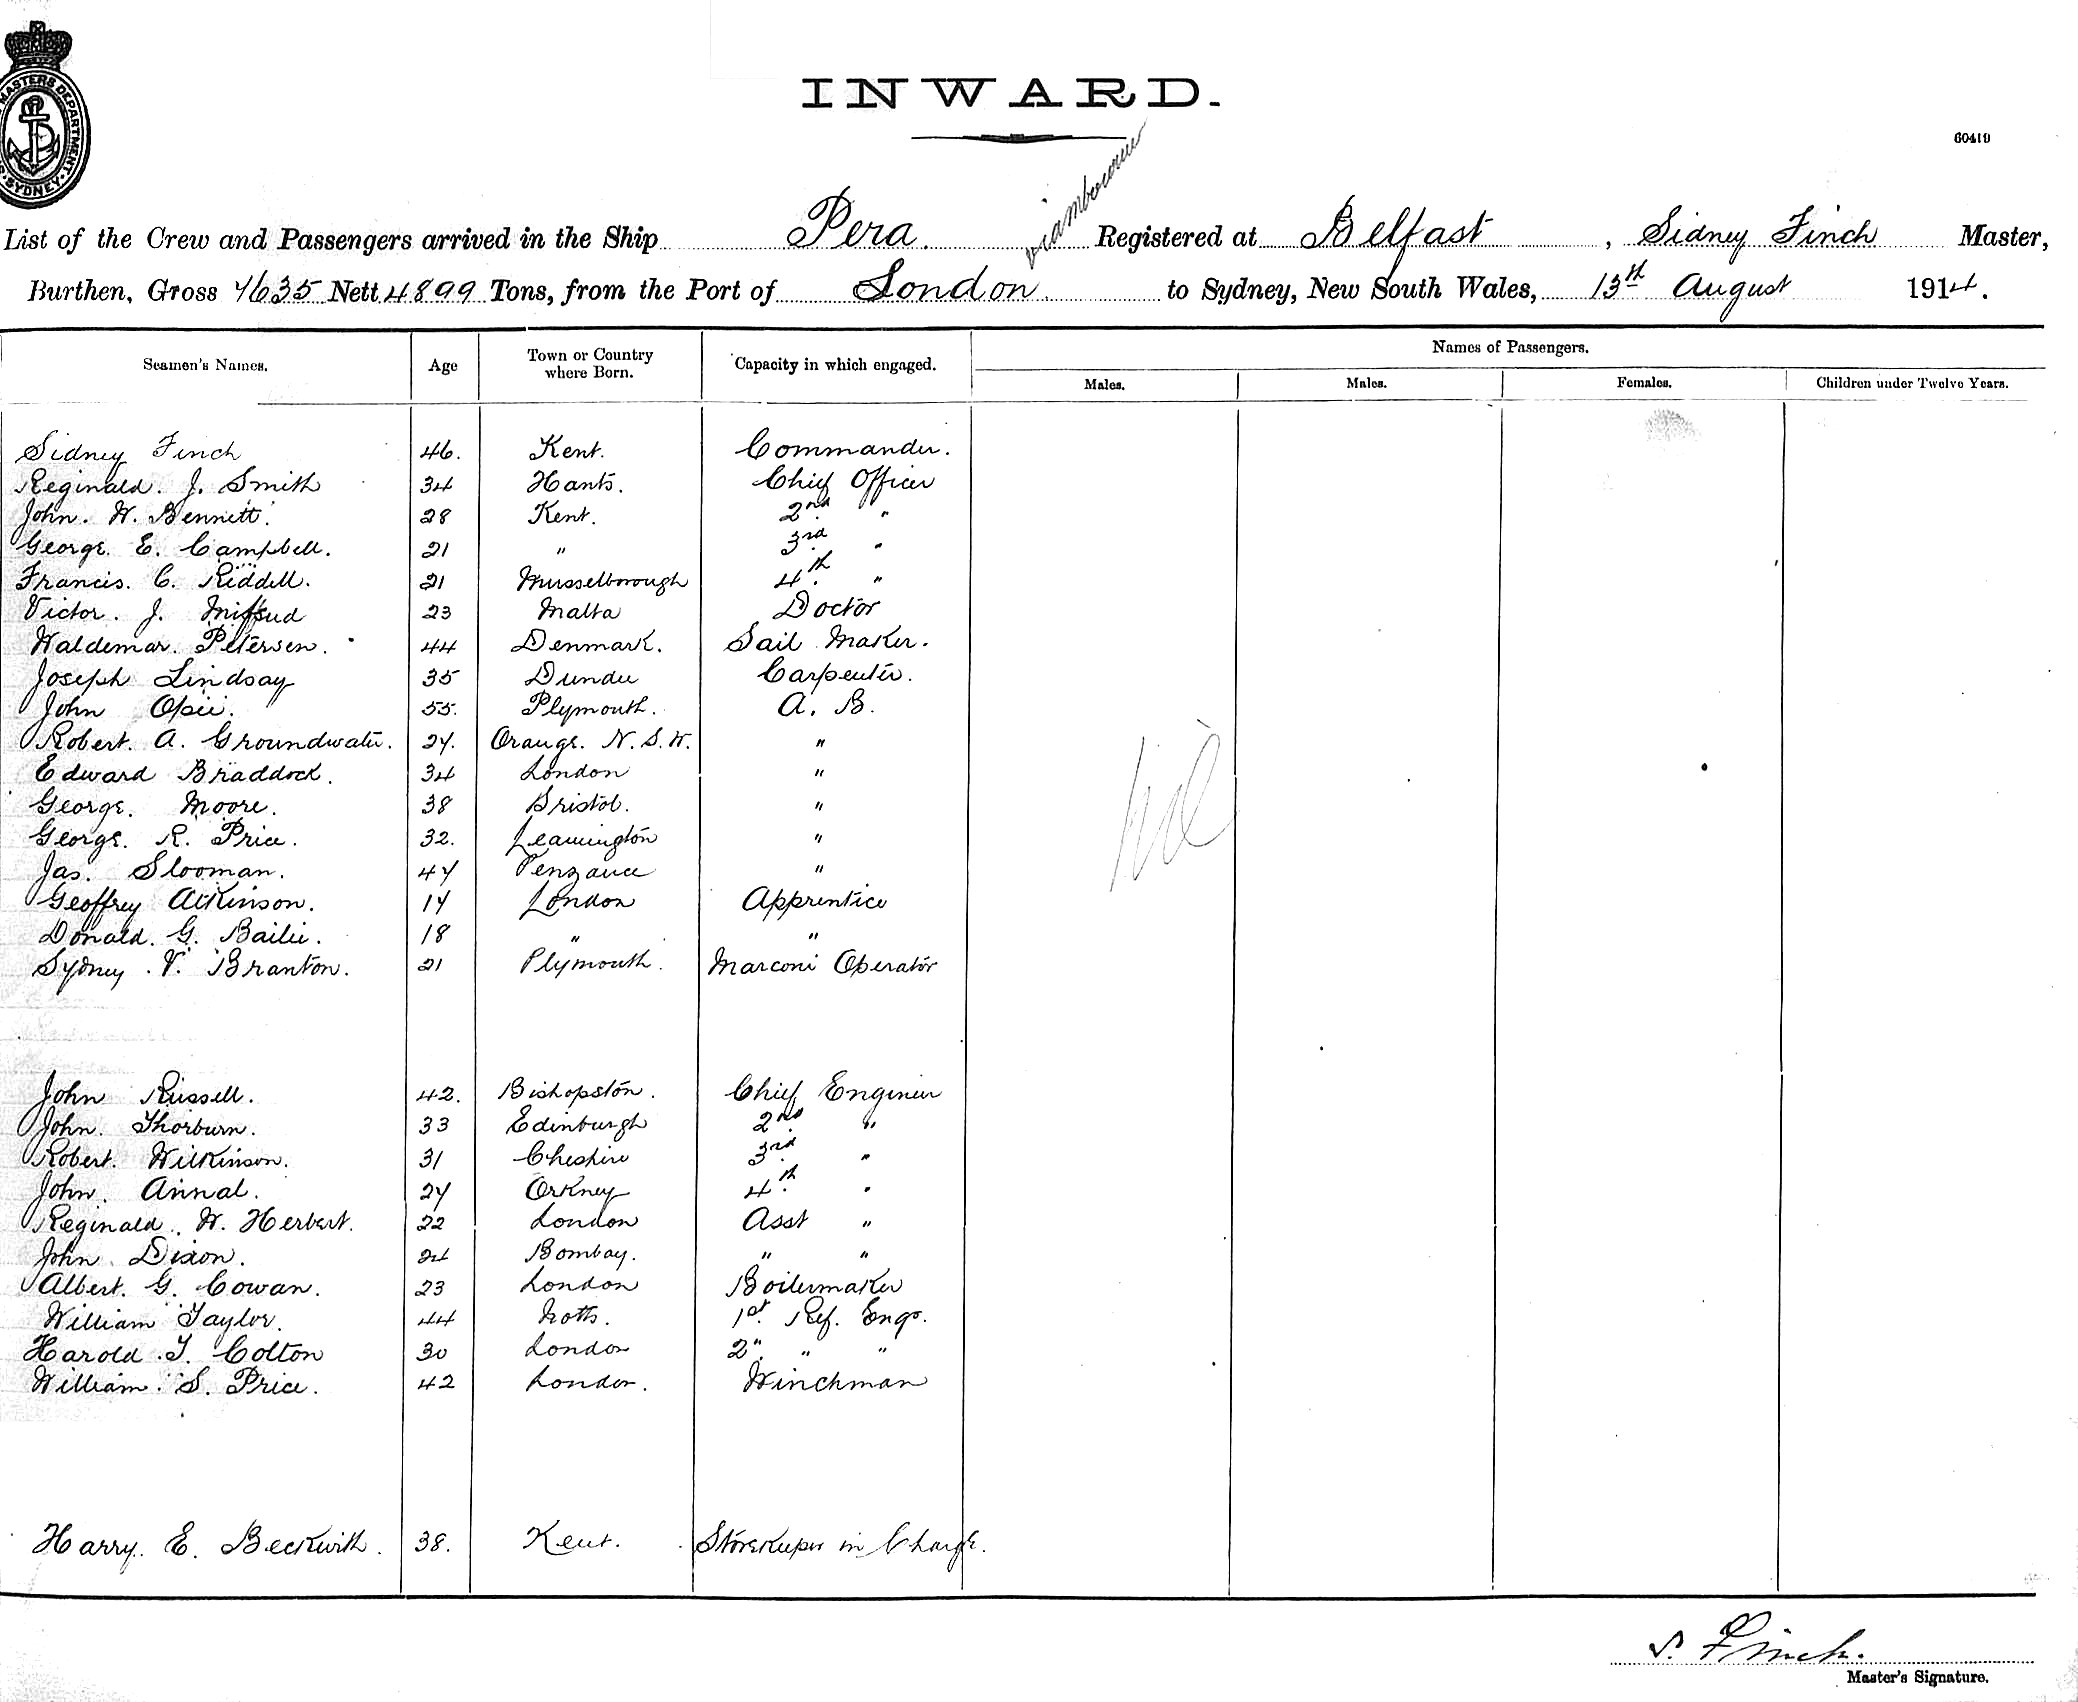 INWARD.
60419
MASTERS DEPARTMENT
SYDNEY
List of the Crew and Passengers arrived in the Ship Pera. Registered at Belfast, Sidney Finch Master,
Burthen, Gross 7635 Nett 4899 Tons, from the Port of London to Sydney, New South Wales, 13th August 1914.
Names of Passengers.
Seamen's Names. Age Town or Country where Born. Capacity in which engaged. Males. Males. Females. Children under Twelve Years.
Sidney Finch 46. Kent. Commander.
Reginald. J. Smith 34 Hants. Chief Officer
John. W. Bennett. 28 Kent. 2nd "
George. E. Campbell. 21 " 3rd "
Francis. C. Riddell. 21 Musselborough 4th. "
Victor. J. Mifsud 23 Malta Doctor
Waldemar. Petersen. 44 Denmark. Sail Maker.
Joseph Lindsay 35 Dundee Carpenter.
John Opie. 55. Plymouth. A. B.
Robert. A. Groundwater. 27. Orange. N. S. W. "
Edward Braddock. 34 London "
George. Moore. 38 Bristol. "
George. R. Price. 32. Leamington "
Jas. Slooman. 47 Penzance "
Geoffrey Atkinson. 17 London Apprentice
Donald. G. Bailie. 18 " "
Sydney. V. Branton. 21 Plymouth. Marconi Operator
Nil
John Russell. 42. Bishopston. Chief Engineer
John. Thorburn. 33 Edinburgh 2nd "
Robert. Wilkinson. 31 Cheshire 3rd "
John. Annal. 27 Orkney 4th. "
Reginald. W. Herbert. 22 London Asst "
John. Dixon. 24 Bombay. " "
Albert. G. Cowan. 23 London Boilermaker
William Taylor. 44 Notts. 1st. Ref. Engr.
Harold. T. Colton 30 London 2" " "
William. S. Price. 42 London. Winchman
Harry. E. Beckwith. 38. Kent. Storekeeper in Charge.
S. Finch.
Master's Signature.